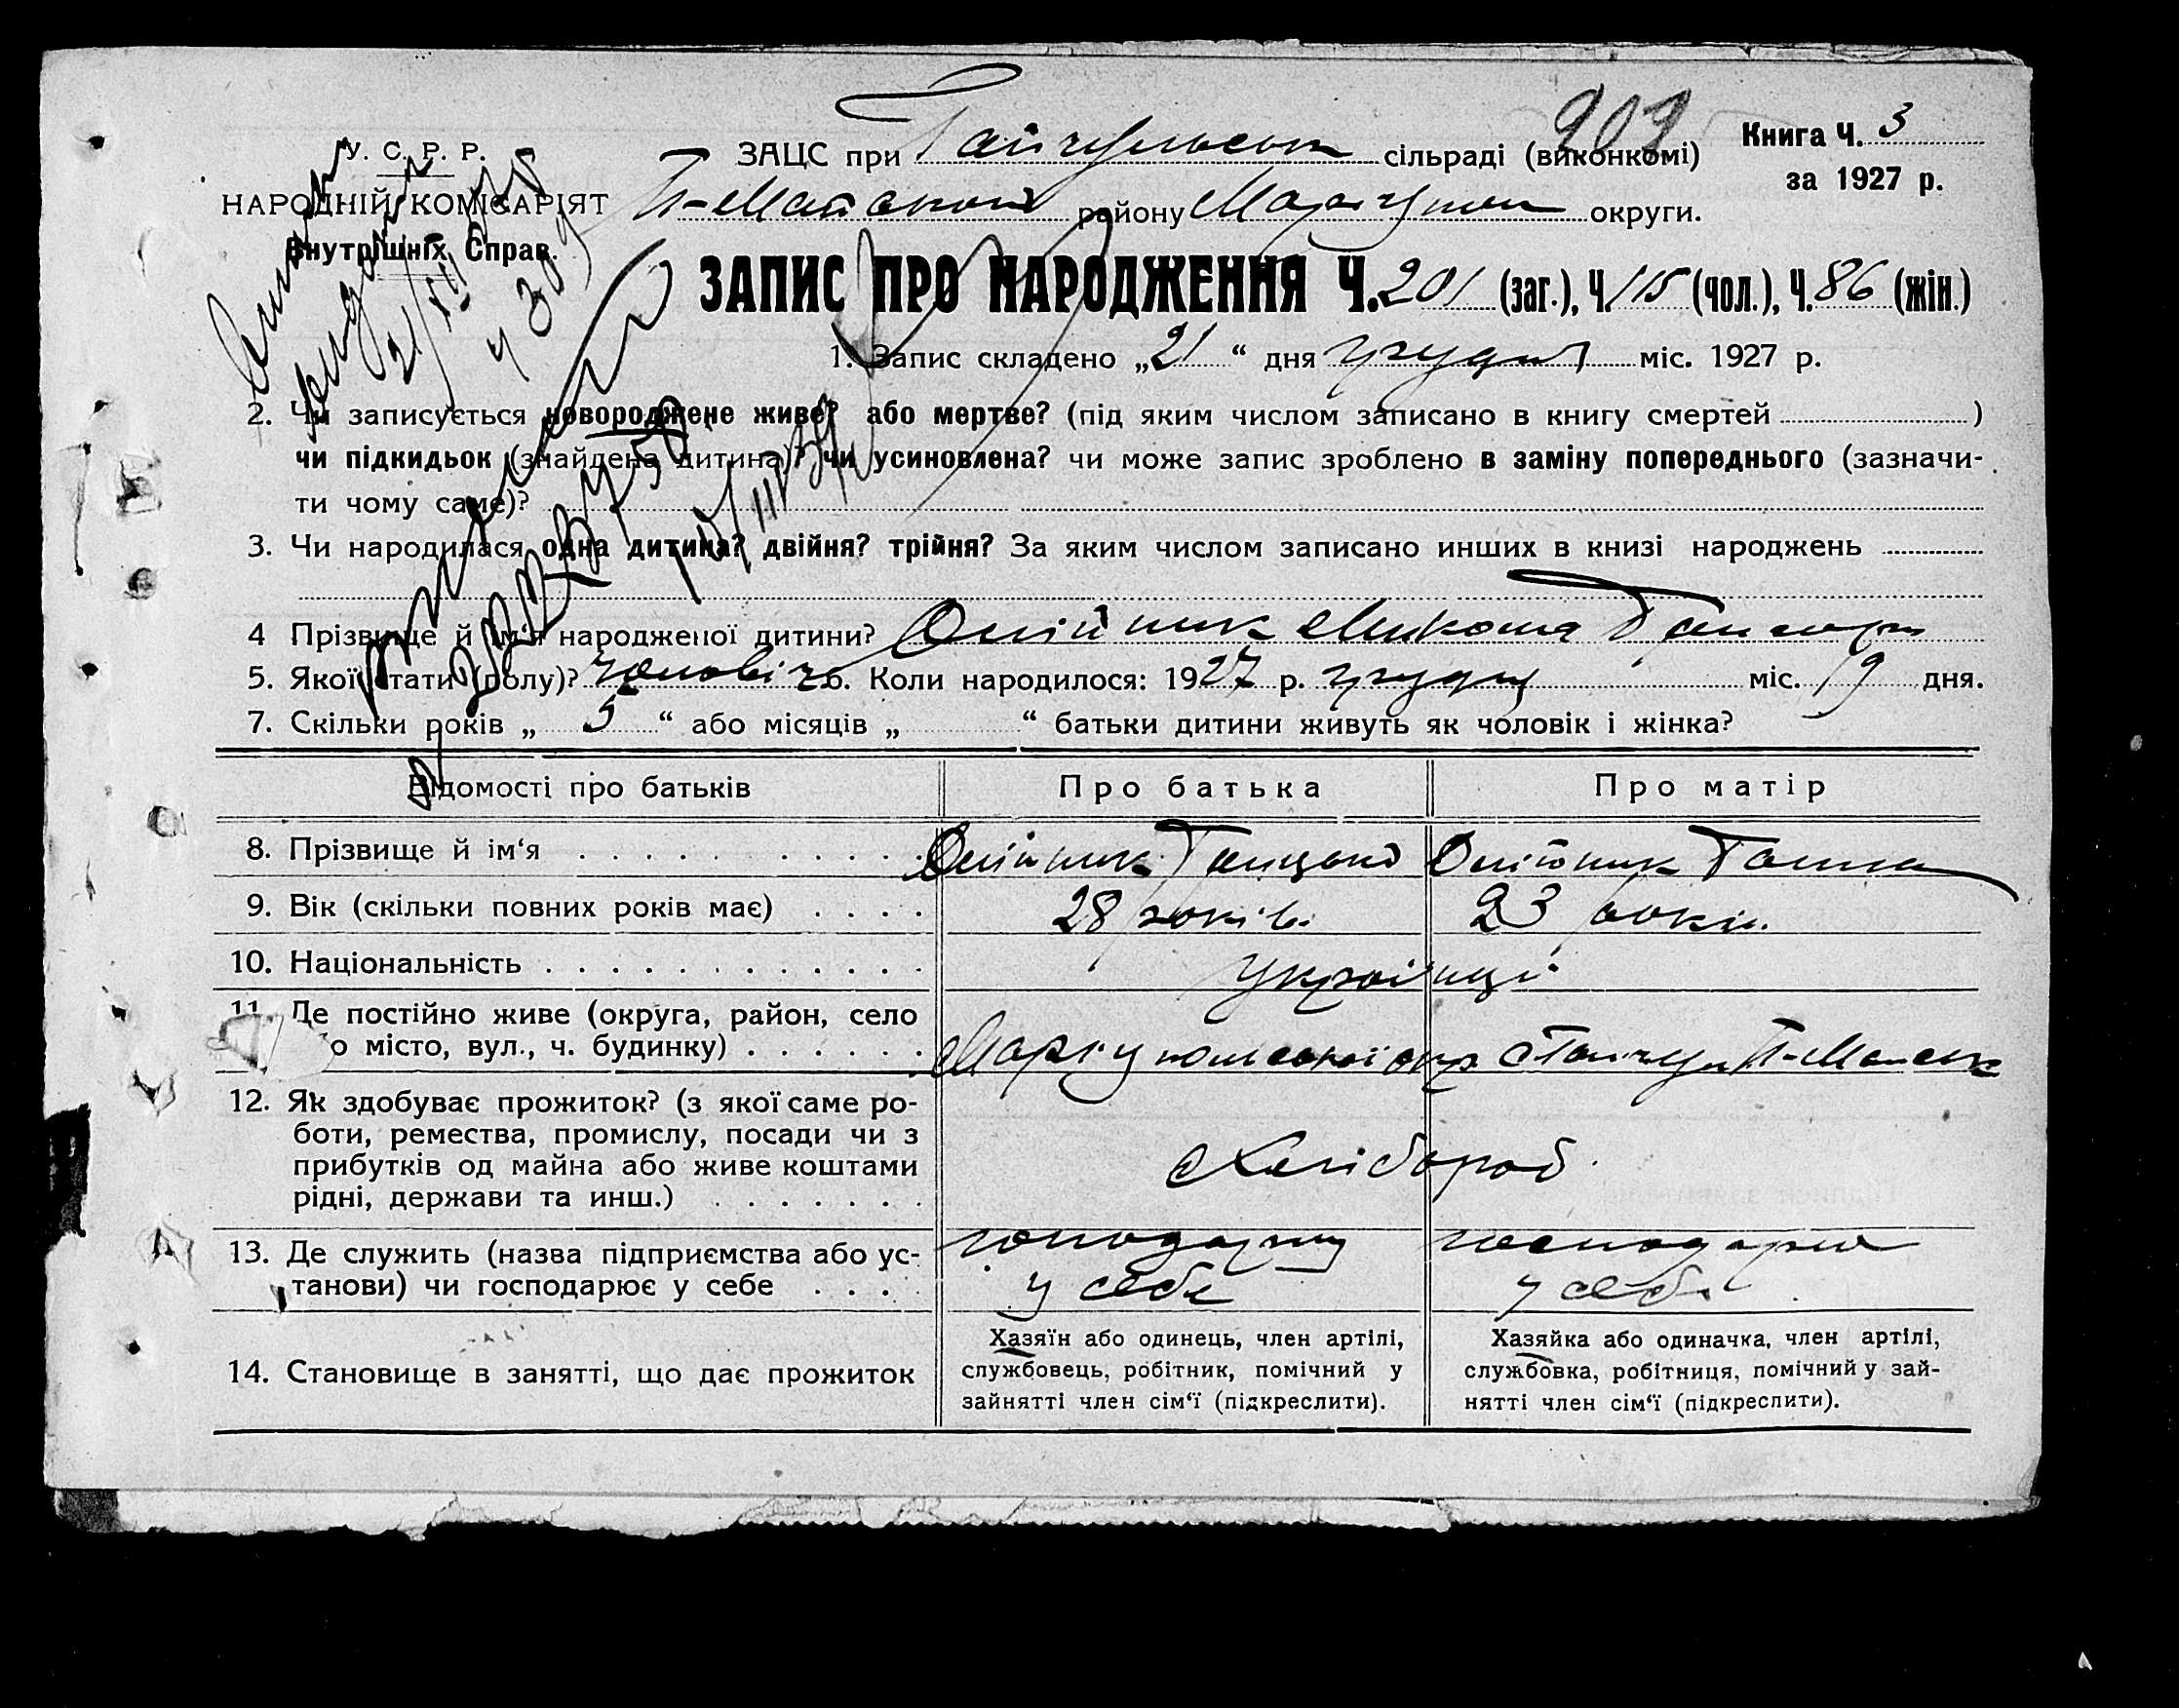 909
Книга Ч. 3
за 1927 р.
У. С. Р. Р.
НАРОДНІЙ КОМІСАРІЯТ
Внутрішніх Справ.
ЗАЦС при Гайчульськ сільраді (виконкомі)
району округи.
ЗАПИС ПРО НАРОДЖЕННЯ Ч. 201 (заг.), Ч. 115 (чол.), Ч. 86 (жін.)
1. Запис складено „21“ дня грудня міс. 1927 р.
2. Чи записується новороджене живе? або мертве? (під яким числом записано в книгу смертей )
чи підкидьок (знайдена дитина)? чи усиновлена? чи може запис зроблено в заміну попереднього (зазначи-
ти чому саме)?
3. Чи народилася одна дитина? двійня? трійня? За яким числом записано инших в книзі народжень
4 Прізвище й ім‘я народженої дитини? Олійник Микола
5. Якої стати (полу)? чоловіч 6. Коли народилося: 1927 р. грудня міс. 19 дня.
7. Скільки років „ 5 “ або місяців „ “ батьки дитини живуть як чоловік і жінка?
Відомості про батьків Про батька Про матір
8. Прізвище й ім‘я Олійник Грицько Олійник Ганна
9. Вік (скільки повних років має) 28 років. 23 роки.
10. Національність Українці
11. Де постійно живе (округа, район, село
або місто, вул., ч. будинку)
12. Як здобуває прожиток? (з якої саме ро-
боти, ремества, промислу, посади чи з
прибутків од майна або живе коштами
рідні, держави та инш.) Хлібороб.
13. Де служить (назва підприємства або ус-
танови) чи господарює у себе у себе у себе
Хазяїн або одинець, член артілі,
службовець, робітник, помічний у
зайнятті член сім‘ї (підкреслити).
Хазяйка або одиначка, член артілі,
службовка, робітниця, помічний у зай-
нятті член сім‘ї (підкреслити).
14. Становище в занятті, що дає прожиток